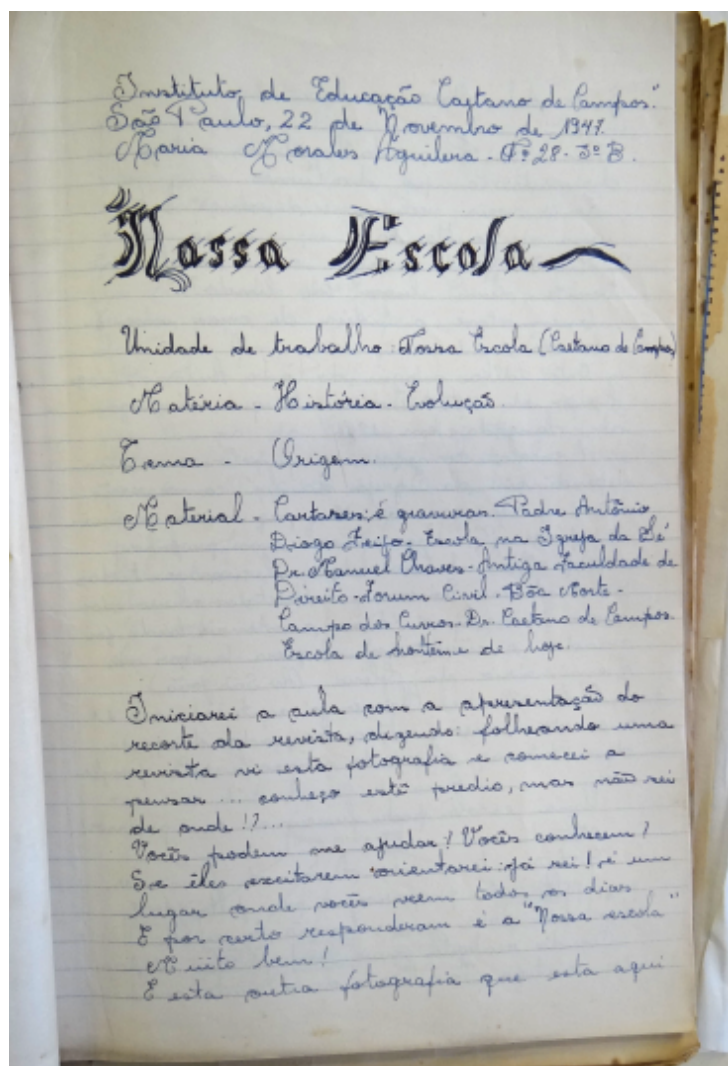 Instituto de Educação Caetano de Campos."
São Paulo, 22 de Novembro de 1947.
Maria Morales Aguilera - Nº 28 - 3º B.
Nossa Escola
Unidade de trabalho: Nossa Escola (Caetano de Campos)
Matéria - História - Evolução.
Tema - Origem.
Material - Cartazes, é gravuras. Padre Antônio
Diogo Feijo - Escola na Igreja da Sé
Dr. Manuel Chaves - Antiga Faculdade de
Direito - Forum Civil - Bôa Morte -
Campo dos Curros - Dr. Caetano de Campos.
Escola de hontem e de hoje.
Iniciarei a aula com a apresentação do
recorte da revista, dizendo: folheando uma
revista vi esta fotografia e comecei a
pensar ... conheço este predio, mas não sei
de onde!?...
Vocês podem me ajudar? Vocês conhecem?
Se êles excitarem orientarei: já sei! é um
lugar onde vocês veem todos os dias
E por certo responderam é a "Nossa escola"
Muito bem!
E esta outra fotografia que esta aqui